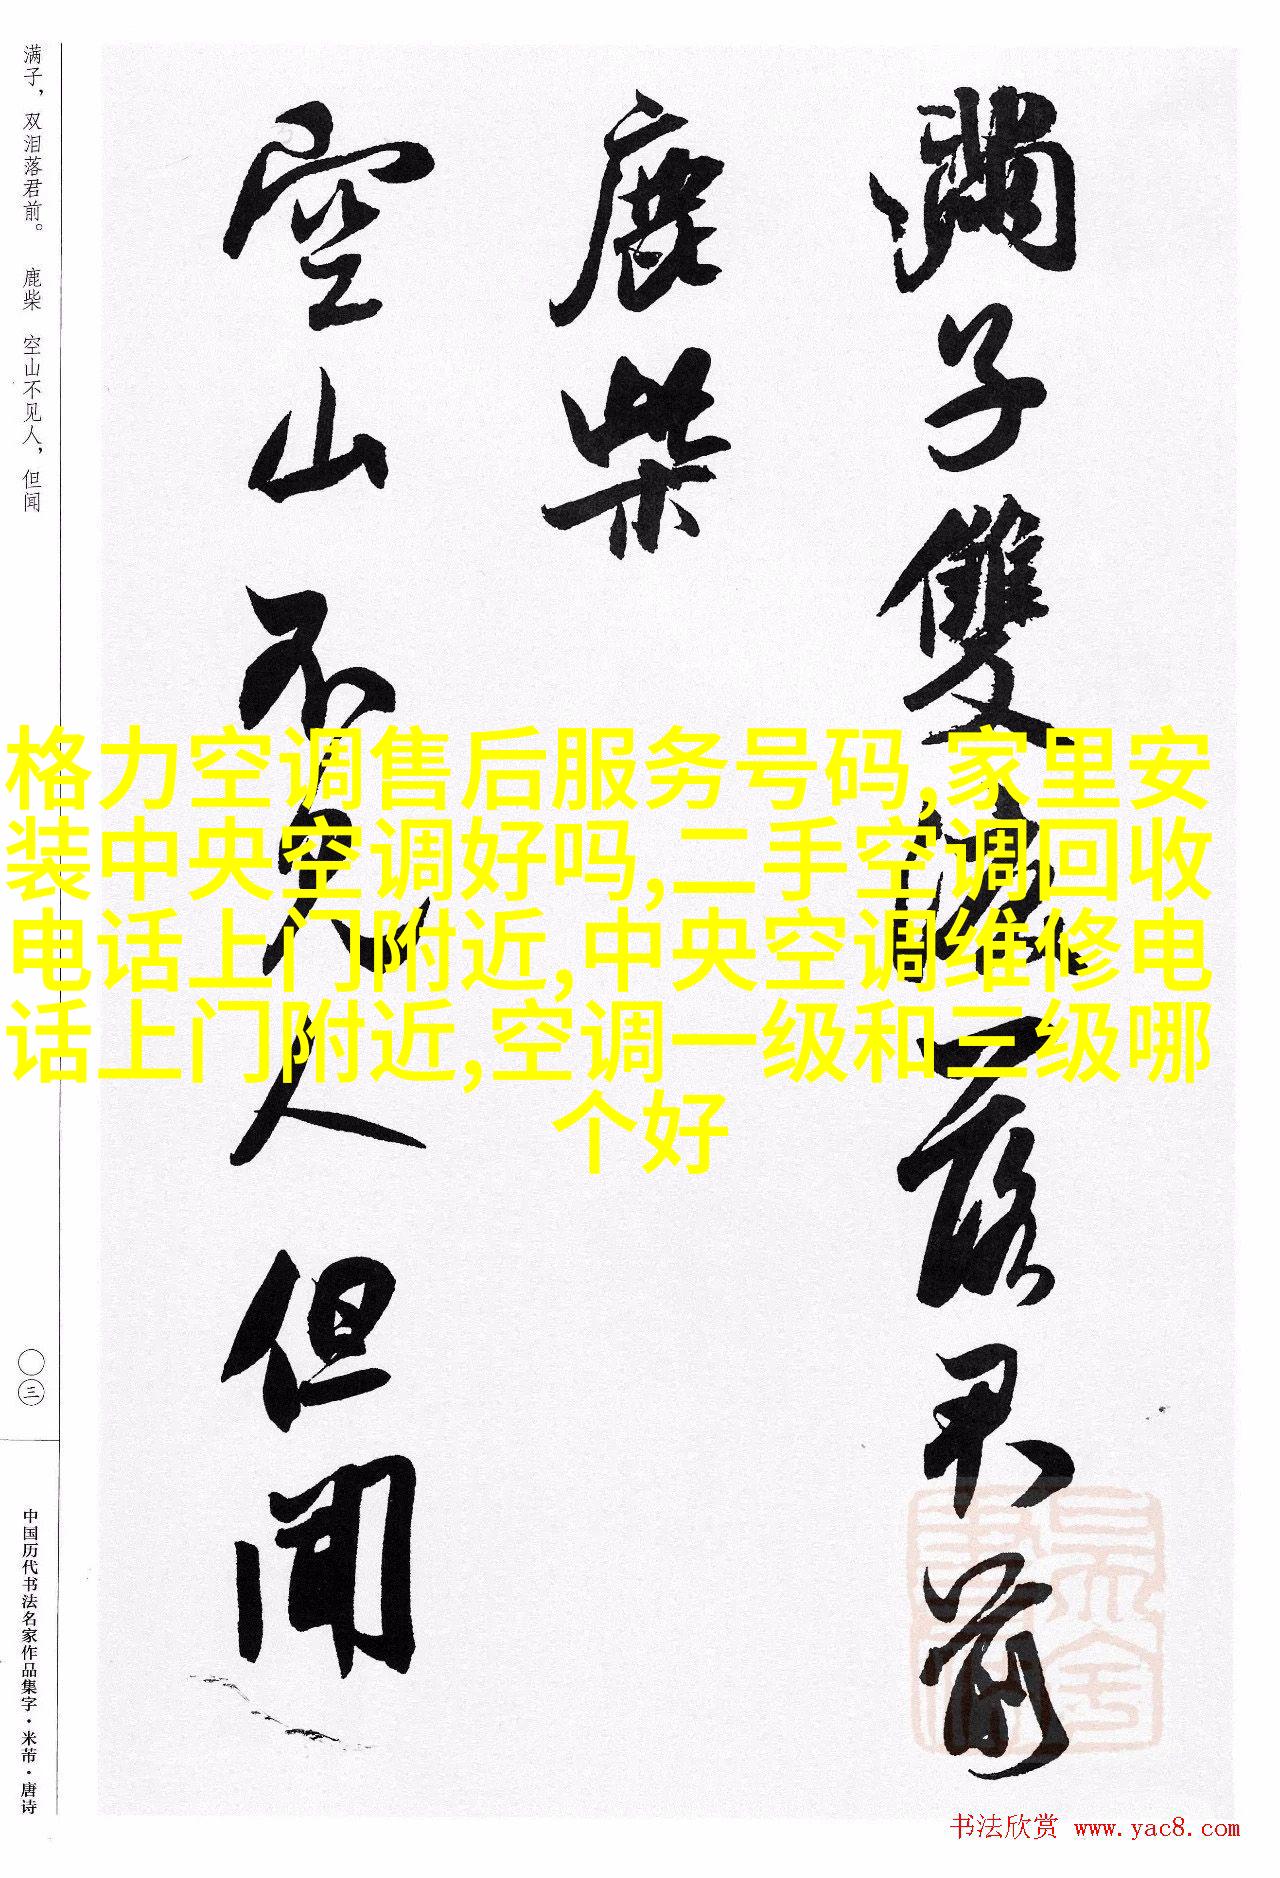 满子，双泪落君前。 鹿柴 空山不见人，但闻
滿子雙淚落君前
鹿柴
空山不見人但聞
格力空调售后服务号码,家里安
装中央空调好吗,二手空调回收
电话上门附近,中央空调维修电
话上门附近,空调一级和三级哪
个好
〇三
中国历代书法名家作品集字·米芾·唐诗
书法欣赏 www.yac8.com